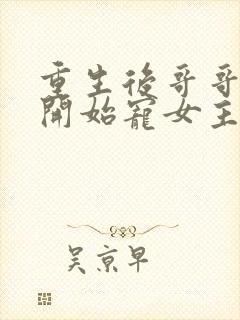 重生後哥哥
開始寵女主
吳京早